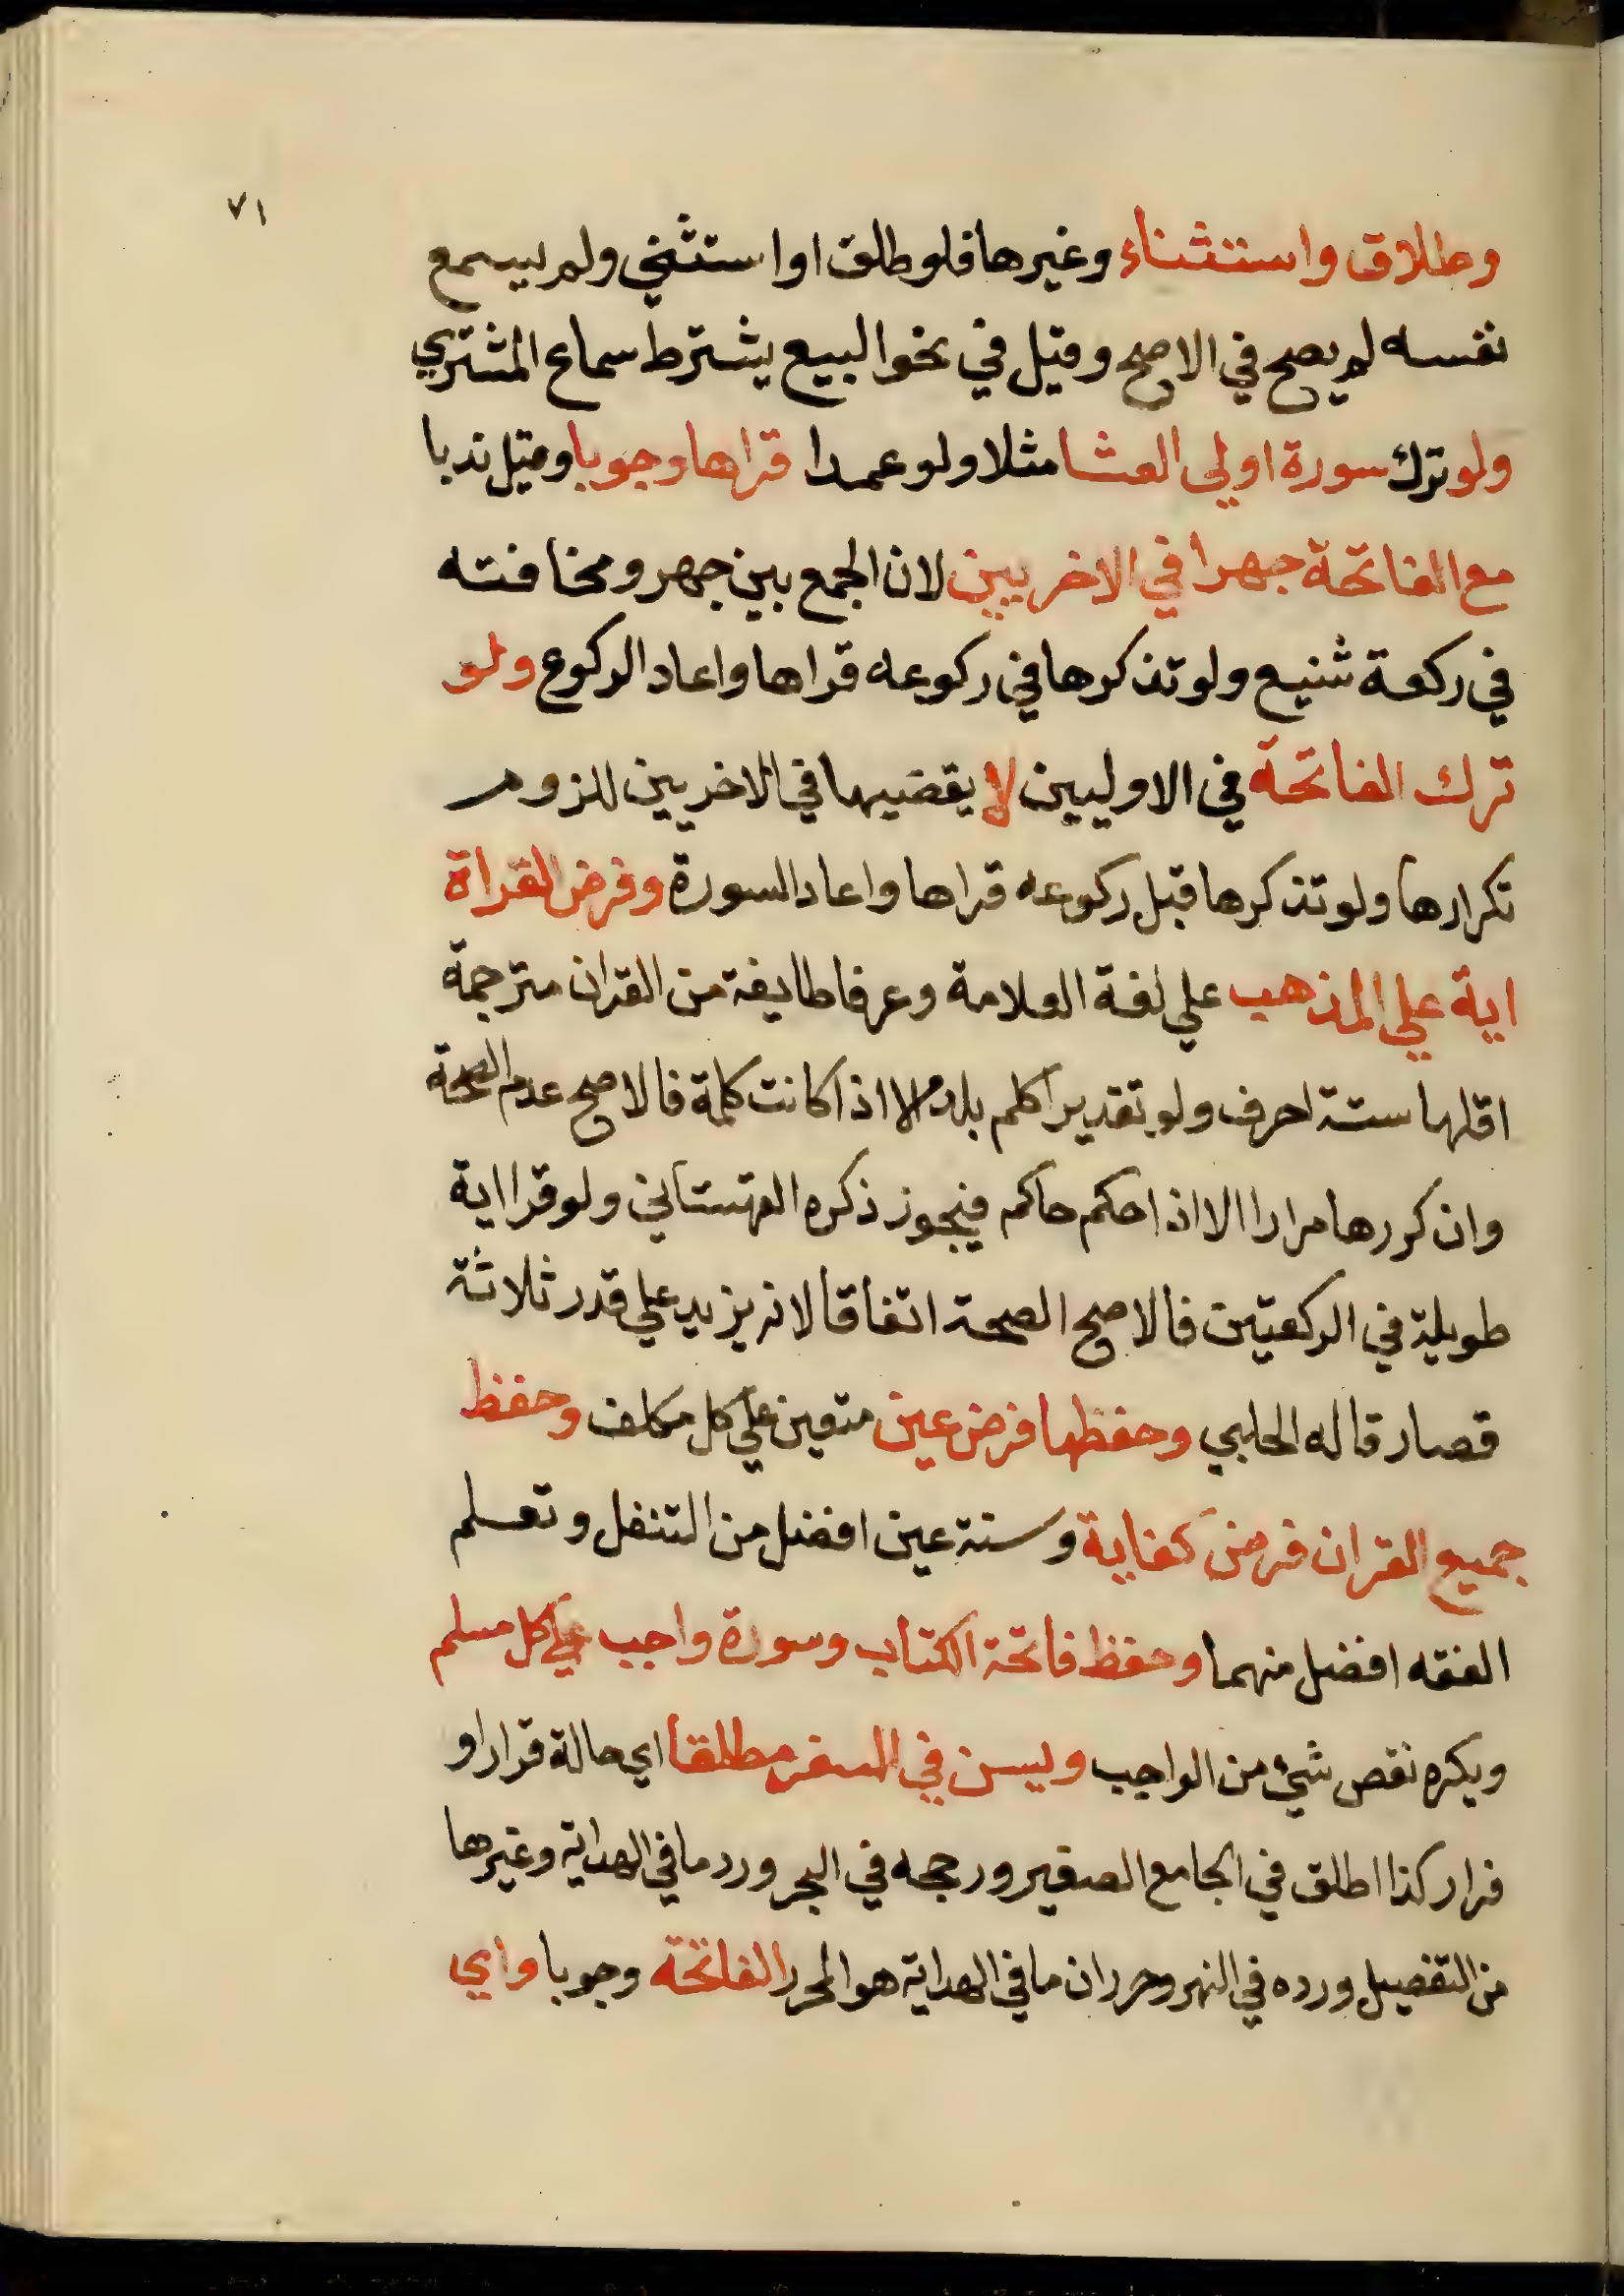 ٧١
وطلاق واستثناء وغيرها فلو طلق او استثني ولم يسمع
نفسه لم يصح في الاصح وقيل في نحو البيع يشترط سماع المشتري
ولو ترك سورة اولي العشا مثلا ولو عمدا قراها وجوبا وقيل ندبا
مع الفاتحة جهرا في الاخريين لان الجمع بين جهر ومخافته
في ركعة شنيع ولو تذكرها في ركوعه قراها واعاد الركوع ولو
ترك الفاتحة في الاوليين لا يقضيها في الاخريين للزوم
تكرارها ولو تذكرها قبل ركوعه قراها واعاد السورة وفرض القراة
اية علي المذهب علي لغة العلامة وعرفا طايفة من القران مترجمة
اقلها ستة احرف ولو تقديرا كلم يلد الا اذا كانت كلمة فالاصح عدم الصحة
وان كررها مرارا الا اذا حكم حاكم فيجوز ذكره القهستاني ولو قرا اية
طويلة في الركعتين فالاصح الصحة اتفاقا لانه يزيد علي قدر ثلاثة
قصار قاله الحلبي وحفظها فرض عين متعين علي كل مكلف وحفظ
جميع القران فرض كفاية وسنة عين افضل من التنفل وتعلم
الفقه افضل منهما وحفظ فاتحة الكتاب وسورة واجب علي كل مسلم
ويكره نقص شئ من الواجب ويسن في السفر مطلقا اي حالة قرار او
فرار كذا اطلق في الجامع الصغير ورجحه في البحر ورد ما في الهداية وغيرها
من التفصيل ورده في النهر وحرر ان ما في الهداية هو المحرر الفاتحة وجوبا واي